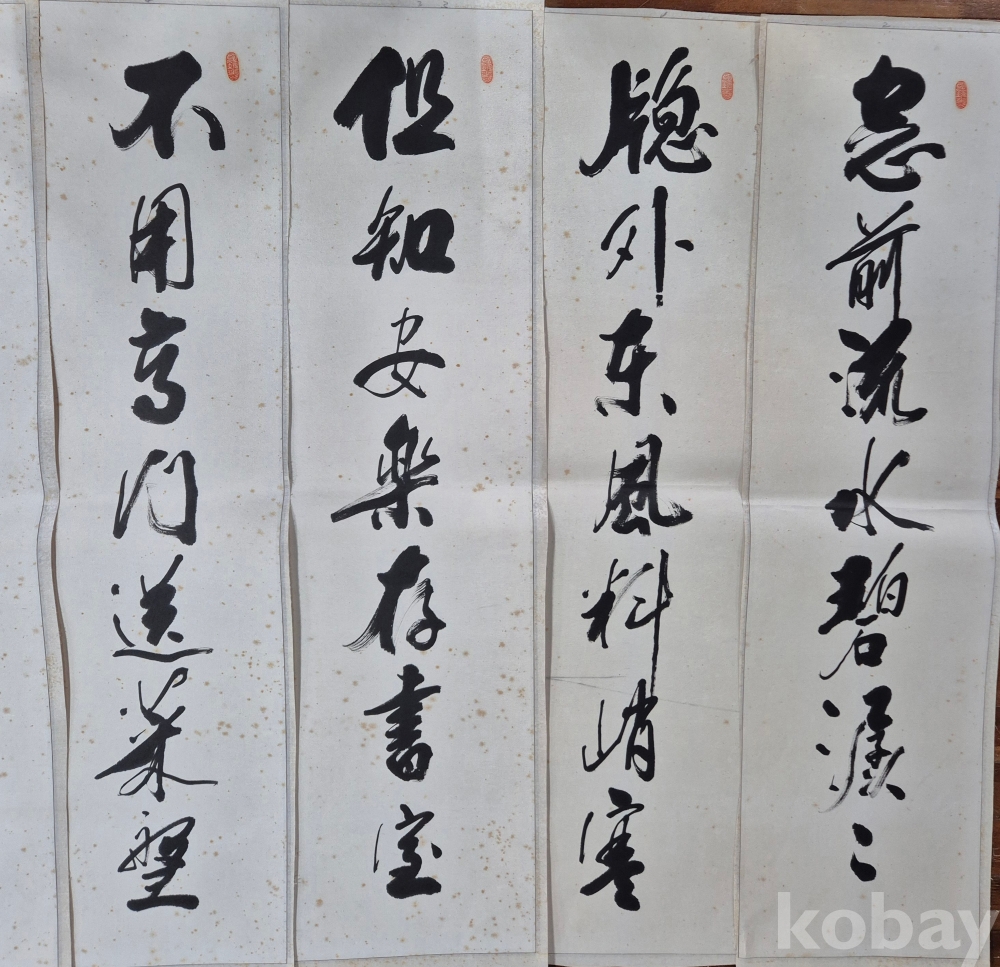 窓前流水碧潺々
牕外東風料峭寒
但知安樂存書室
不用高門送菜盤
kobay